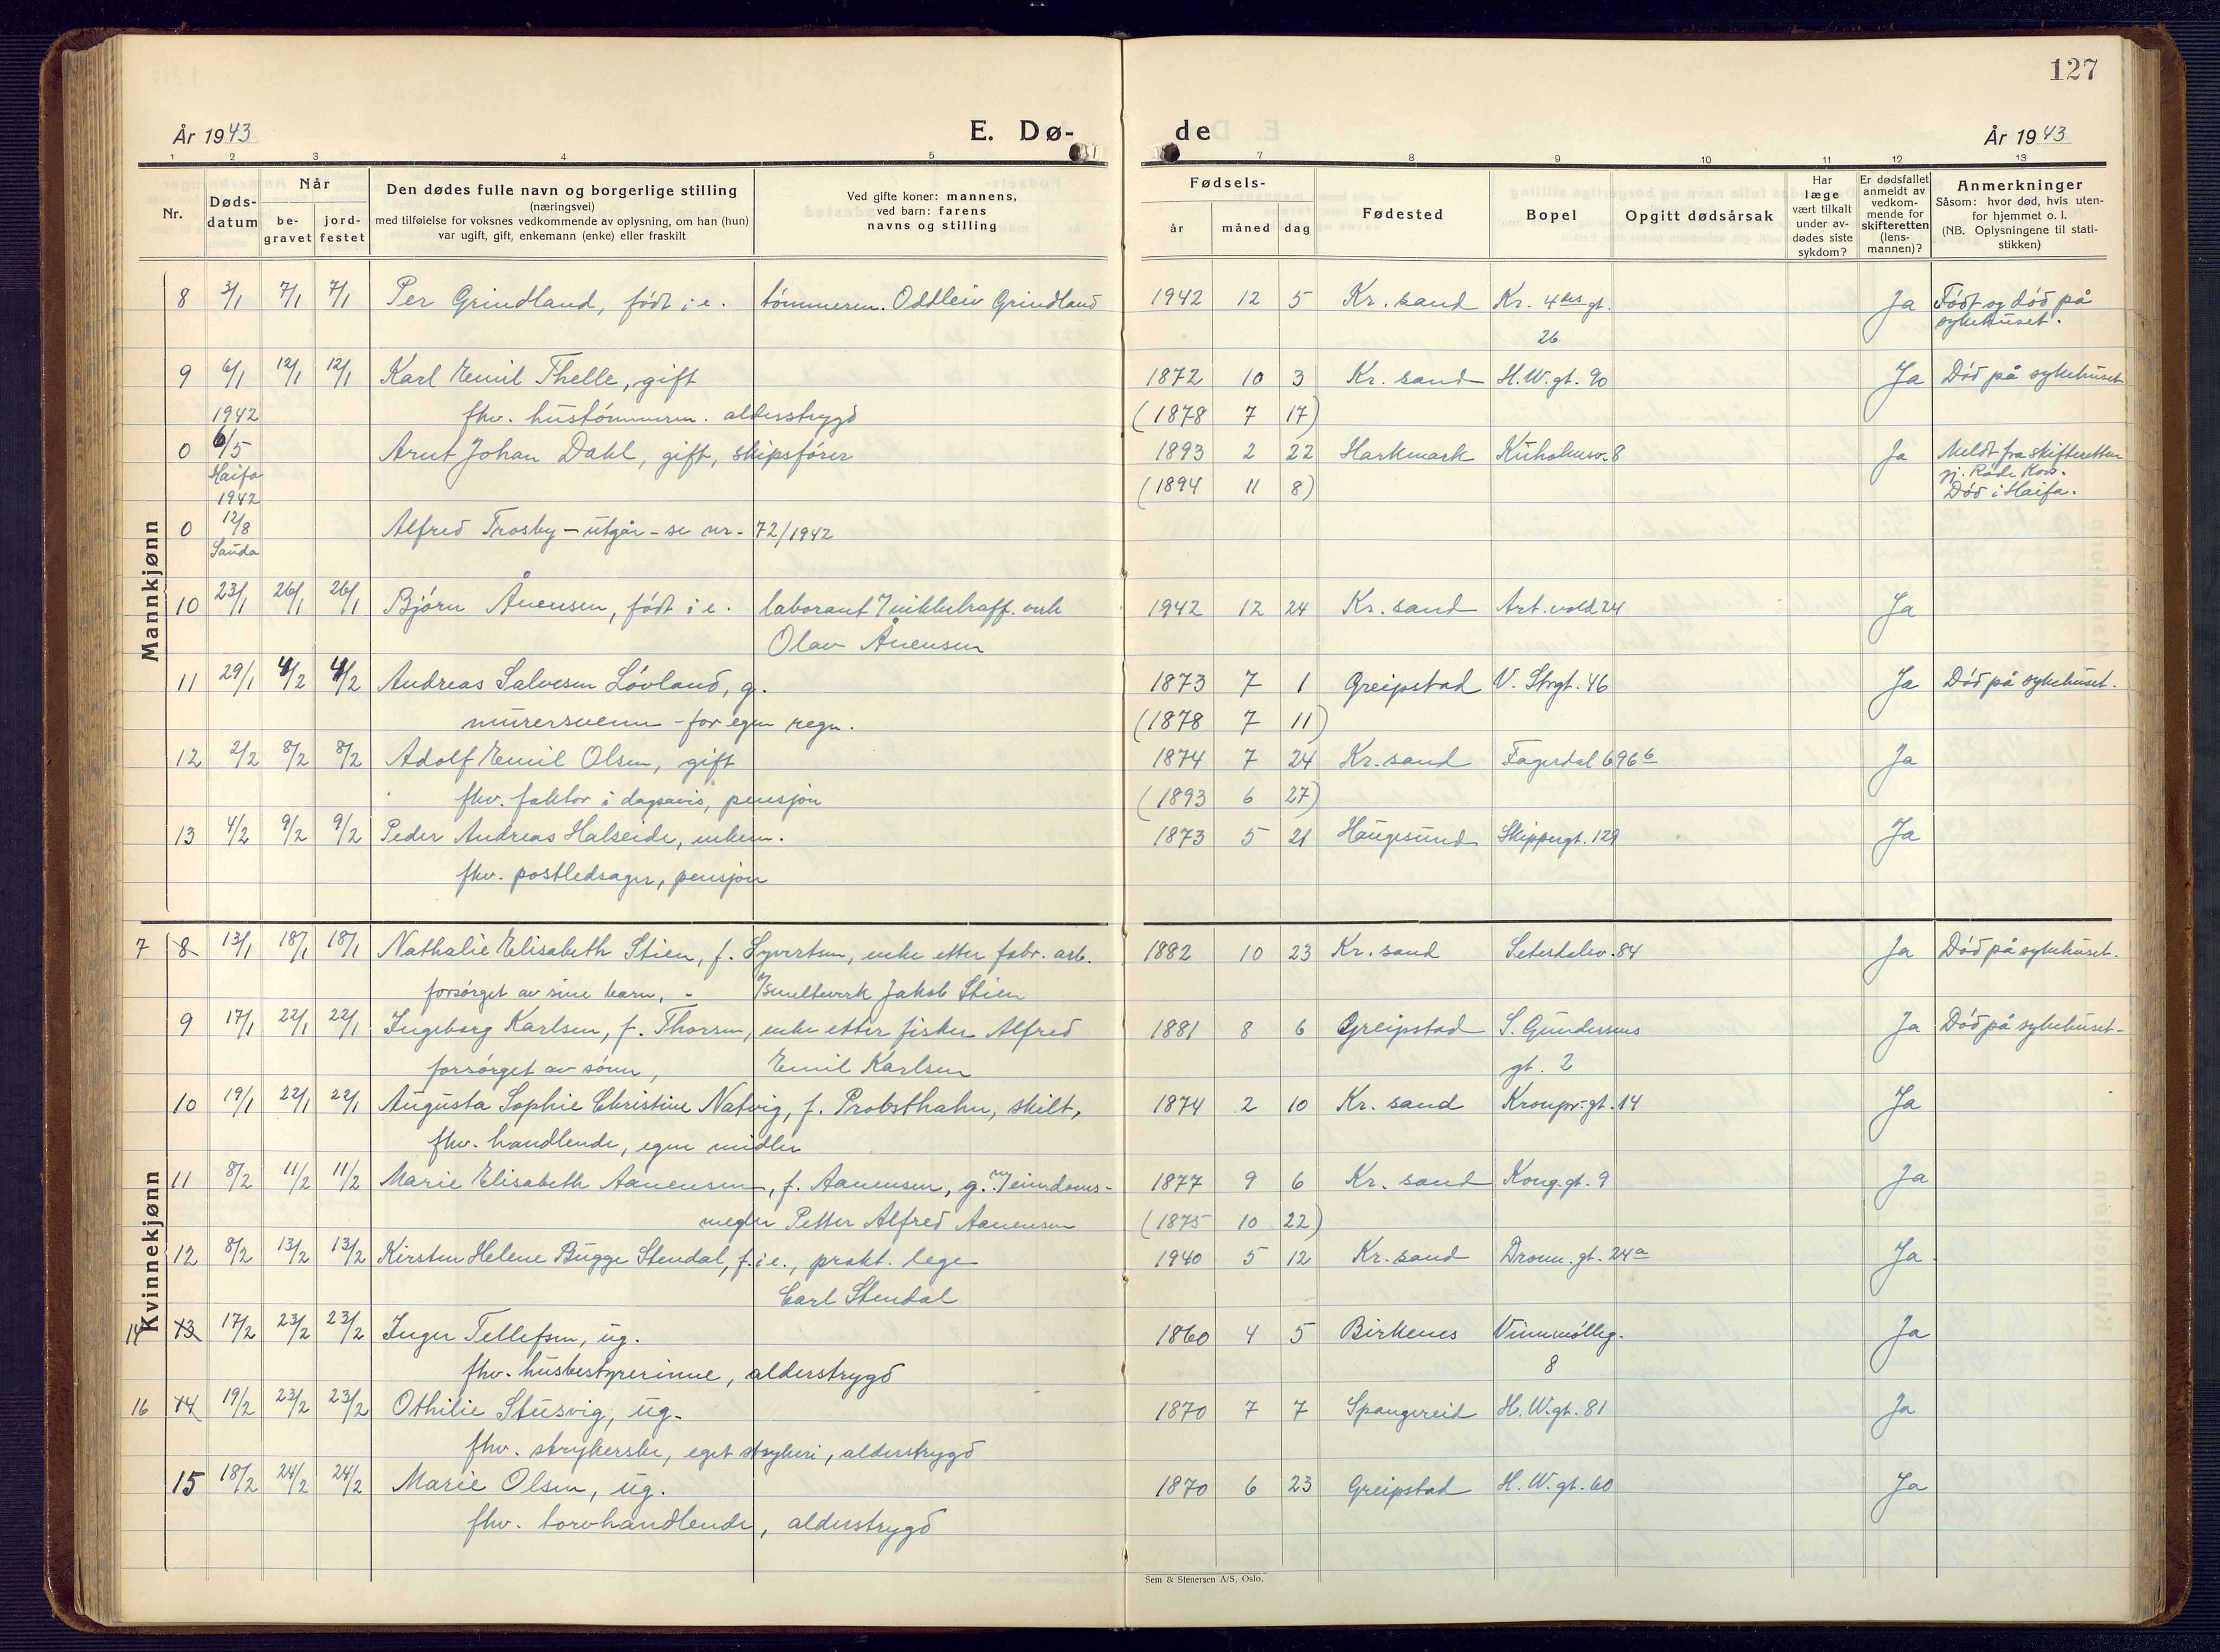 127
År 1943 E. Dø- de År 1943
1 2 3 4 5 7 8 9 10 11 12 13
Nr. Døds-datum Når be-gravet jord-festet Den dødes fulle navn og borgerlige stilling (næringsvei) med tilføielse for voksnes vedkommende av oplysning, om han (hun) var ugift, gift, enkemann (enke) eller fraskilt Ved gifte koner: mannens, ved barn: farens navns og stilling Fødsels- år måned dag Fødested Bopel Opgitt dødsårsak Har læge vært tilkalt under av-dødes siste sykdom? Er dødsfallet anmeldt av vedkom-mende for skifteretten (lens-mannen)? Anmerkninger Såsom: hvor død, hvis uten-for hjemmet o. l. (NB. Oplysningene til stati-stikken)
Mannkjønn
8 3/1 7/1 7/1 Per Grindland, født i e. tømmerm. Oddleiv Grindland 1942 12 5 Kr. sand Kr. 4des gt. Ja Født og død på
26 sykehuset.
9 6/1 12/1 12/1 Karl Emil Thelle, gift 1872 10 3 Kr. sand H.W.gt. 90 Ja Død på sykehuset
fhv. hustømmerm. alderstrygd (1878 7 17)
1942
0 6/5 Arnt Johan Dahl, gift, skipsfører 1893 2 22 Harkmark Kuholmsv. 8 Ja Meldt fra skifteretten
Haifa gj. Røde Kors.
(1894 11 8) Død i Haifa.
1942
0 12/8 Alfred Trosby - utgår - se nr. 72/1942
Sauda
10 23/1 26/1 26/1 Bjørn Ånensen, født i e. laborant v/ nikkelraff. verk 1942 12 24 Kr. sand Art. vold 24 Ja
Olav Ånensen
11 29/1 4/2 4/2 Andreas Salvesen Løvland, g. 1873 7 1 Greipstad V. Strgt. 46 Ja Død på sykehuset.
murersvenn - for egen regn. (1878 7 11)
12 2/2 8/2 8/2 Adolf Emil Olsen, gift 1874 7 24 Kr. sand Fagerdal 696 b Ja
fhv. faktor i dagsavis, pensjon (1893 6 27)
13 4/2 9/2 9/2 Peder Andreas Halseide, enkem. 1873 5 21 Haugesund Skippergt. 129 Ja
fhv. postledsager, pensjon
Kvinnekjønn
7 8 13/1 18/1 18/1 Nathalie Elisabeth Stien, f. Syvertsen, enke etter fabr. arb. 1882 10 23 Kr. sand Setesdalsv. 84 Ja Død på sykehuset.
forsørget av sine barn, - v/smelteverk Jakob Stien
9 17/1 22/1 22/1 Ingeborg Karlsen, f. Thorsen, enke etter fisker Alfred 1881 8 6 Greipstad S. Gundersens Ja Død på sykehuset
forsørget av sønn, Emil Karlsen gt. 2
10 19/1 22/1 22/1 Augusta Sophie Christine Natvig, f. Probsthahn, skilt, 1874 2 10 Kr. sand Kronpr. gt. 14 Ja
fhv. handlende, egne midler
11 8/2 11/2 11/2 Marie Elisabeth Aanensen, f. Aanensen, g. m/ eiendoms- 1877 9 6 Kr. sand Kong. gt. 9 Ja
megler Petter Alfred Aanensen (1875 10 22)
12 8/2 13/2 13/2 Kirsten Helene Bugge Stendal, f. i e., prakt. lege 1940 5 12 Kr. sand Dronn. gt. 24a Ja
Carl Stendal
14 13 17/2 23/2 23/2 Inger Tellefsen, ug. 1860 4 5 Birkenes Vinnmølleg. Ja
fhv. husbestyrerinne, alderstrygd 8
16 14 19/2 23/2 23/2 Othilie Stusvig, ug. 1870 7 7 Spangereid H.W.gt. 81 Ja
fhv. strykerske, eget strykeri, alderstrygd
15 18/2 24/2 24/2 Marie Olsen, ug. 1870 6 23 Greipstad H.W.gt. 60 Ja
fhv. torvhandlende, alderstrygd
Sem & Stenersen A/S, Oslo.